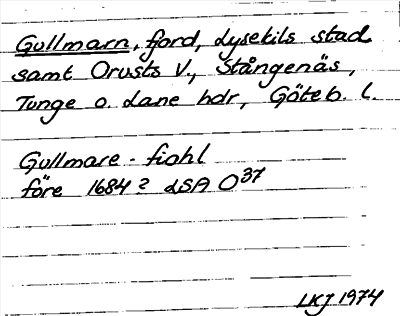 Gullmarn, fjord, Lysekils stad
samt Orusts V., Stångenäs,
Tunge o. Lane hdr, Göteb. l.
Gullmare-fiahl
före 1684? LSA O37
LKJ 1974